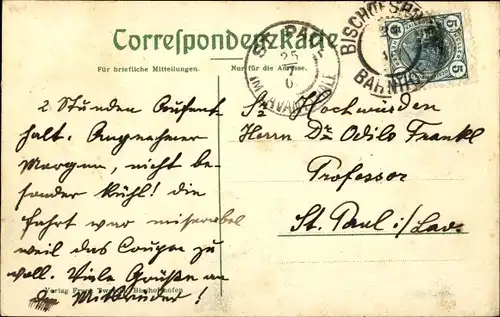 Correspondenzkarte
Für briefliche Mitteilungen.
Nur für die Adresse.
ST. PAUL
25
7
IM LAVANTTALE
BISCHOFSHOFEN
BAHNHOF
5 5
5 5
2. Stunden Aufent
halt. Angenehmer
Morgen, nicht be-
sonder kühl! die
fahrt war miserabel
weil das Coupee zu
voll. Viele Grüße an
die Mitbrüder!
Sr Hochwürden
Herrn Dr Odilo Frankl
Professor
St. Paul i/ Lav.
Verlag Bischofshofen